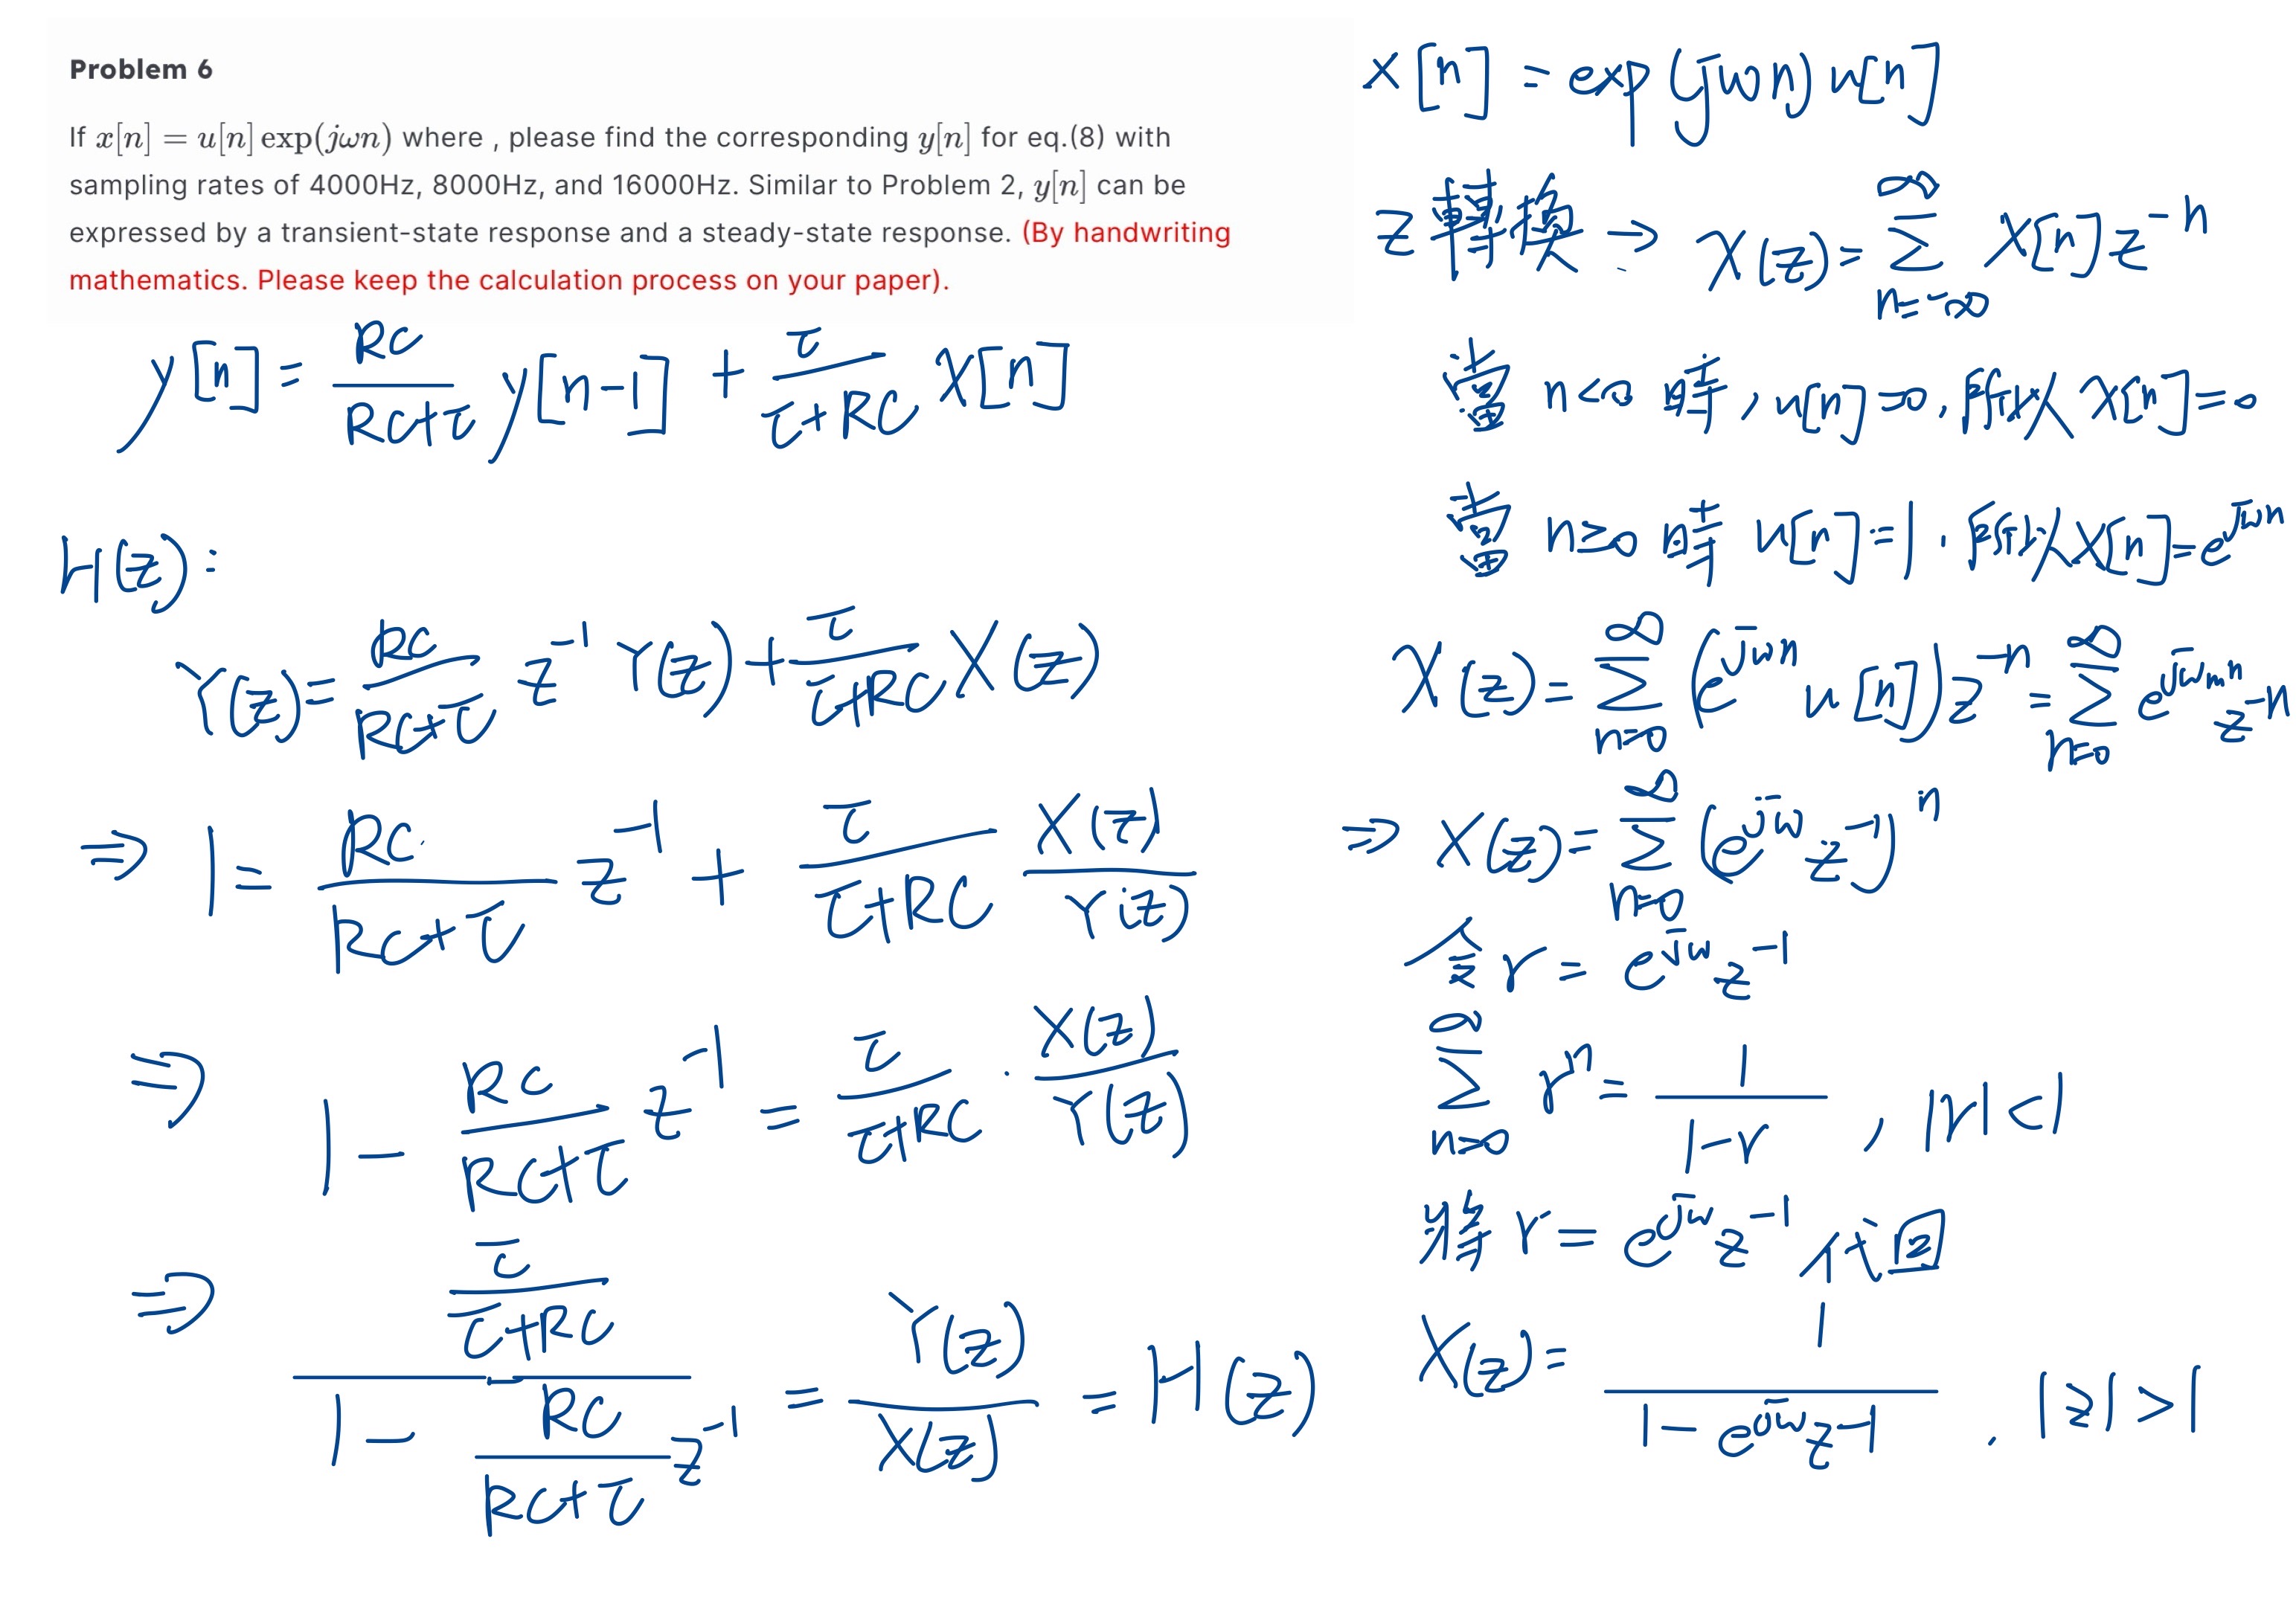 Problem 6
If x[n] = u[n] exp(jωn) where , please find the corresponding y[n] for eq.(8) with
sampling rates of 4000Hz, 8000Hz, and 16000Hz. Similar to Problem 2, y[n] can be
expressed by a transient-state response and a steady-state response. (By handwriting
mathematics. Please keep the calculation process on your paper).
y[n] = RC/(RC+τ) y[n-1] + τ/(τ+RC) x[n]
H(z):
Y(z) = RC/(RC+τ) z⁻¹ Y(z) + τ/(τ+RC) X(z)
⇒ 1 = RC/(RC+τ) z⁻¹ + τ/(τ+RC) X(z)/Y(z)
⇒ 1 - RC/(RC+τ) z⁻¹ = τ/(τ+RC) · X(z)/Y(z)
⇒ (τ/(τ+RC))/(1 - RC/(RC+τ) z⁻¹) = Y(z)/X(z) = H(z)
x[n] = exp(jωn) u[n]
z轉換 → X(z) = ∑_{n=-∞}^{∞} x[n] z⁻ⁿ
當 n<0 時, u[n]=0, 所以 x[n]=0
當 n≥0 時 u[n]=1. 所以 x[n]=e^{jωn}
X(z) = ∑_{n=0}^{∞} (e^{jωn} u[n]) z⁻ⁿ = ∑_{n=0}^{∞} e^{jω_m n} z⁻ⁿ
⇒ X(z) = ∑_{n=0}^{∞} (e^{jω} z⁻¹)ⁿ
令 r = e^{jω} z⁻¹
∑_{n=0}^{∞} rⁿ = 1/(1-r) , |r|<1
將 r = e^{jω} z⁻¹ 代回
X(z) = 1/(1 - e^{jω} z⁻¹) . |z|>1